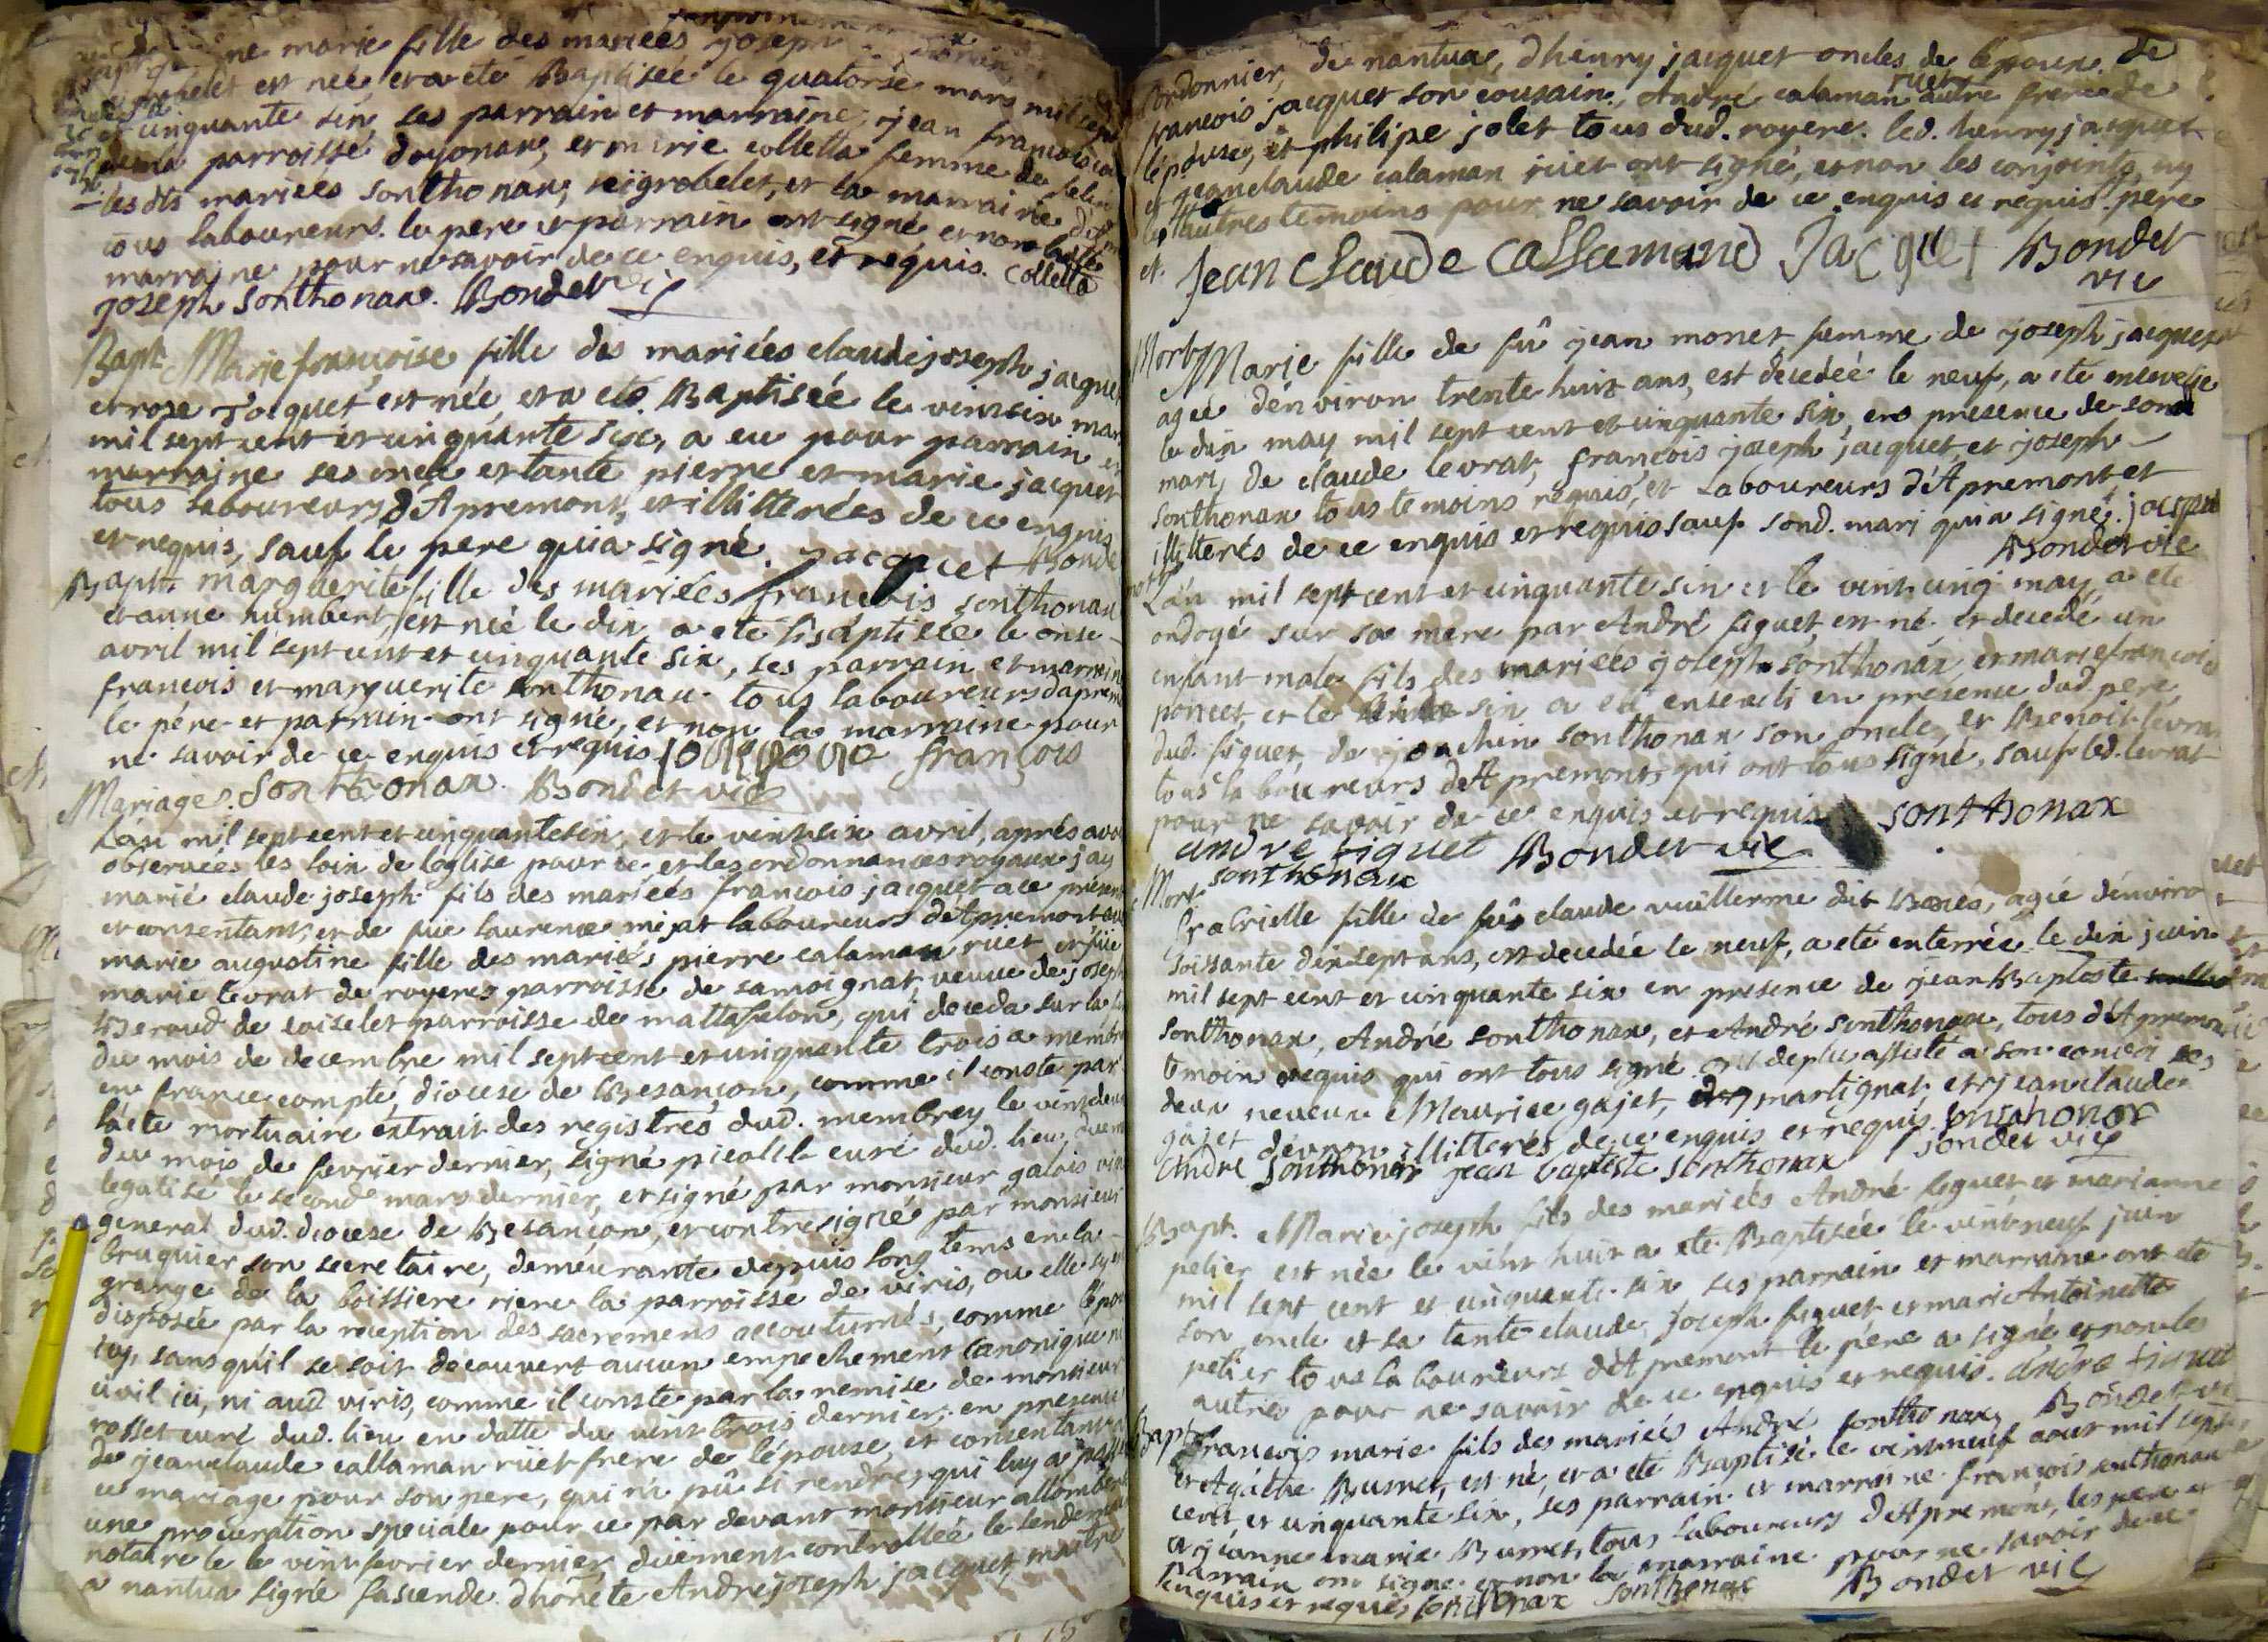 ne marie fille des mariées joseph
est née, et a eté Baptisée le quatorse mars mil sept
cinquante six ses parrain et marraine, jean francois
parroisse doyonax, et marie colletta femme de
les dts mariées sonthonax, seigrobelet, et la marraine
tous laboureurs. le pere et parrain ont signé et non ladte
marraine pour ne savoir de ce enquis, et réquis. Colletta
joseph sonthonax. Bondet vic
Bapt. Marie francoise fille des mariées claude joseph jacquet
et rose Jacquet est née, et a eté Baptisée le vint six mars
mil sept cent et cinquante six, a eu pour parrain et
marraine ses oncle et tante pierre et marie jacquet
tous laboureurs d'Apremont, et illitterées de ce enquis
et requis, sauf le pere qui a signé. jacquet Bondet
Bapt. marguerite fille des mariées francois sonthonax
et anne humbert, est née le dix a eté Baptisée le onse
avril mil sept cent et cinquante six, ses parrain et marraine
francois et marguerite sonthonax tous laboureurs dapremont
le pére et parrain ont signé, et non la marraine pour
ne savoir de ce enquis et requis sonthonax françois
Mariage. Sonthonax. Bondet vic
L'an mil sept cent et cinquante six, et le vint six avril, aprés avoir
observées les loix de l'église pour ce et les ordonnances royaux j'ay
marié claude joseph fils des mariées francois jacquet a ce présent
et consentant, et de füe laurence mejat laboureurs d'Apremont avec
marie augustine fille des mariés pierre calaman rüet, et füe
marie levrat de royeres parroisse de samoignat, veuve de joseph
Beroud de coiselet parroisse de mattafelon, qui deceda sur la fin
du mois de decembre mil sept cent et cinquante trois a membrey
en france compté, diocese de Besançon, comme il conste par
l'acte mortuaire extrait des registres dud. membrey le vint deux
du mois de fevrier dernier, signé picolet curé dud. lieu, duem
legalisé le second mars dernier, et signé par monsieur galois vicaire
general dud. diocese de Besançon, et contresigné par monsieur
bruquier son secretaire, demeurante depuis long tems en la
grange de la boissiere riere la parroisse de viris, ou elle sy est
disposée par la reception des sacremens accoutumés, comme l'époux
icy, sans qu'il se soit decouvert aucun empechement canonique ni
civil ici, ni aud viris, comme il conste par la remise de monsieur
rosset curé dud. lieu en datte du vint trois dernier; en presence
de jeanclaude callaman rüet frere de l'épouse, et consentant a
ce mariage pour son pere, qui n'a pû si rendre, qui luy a passé
une procuration speciale pour ce par devant monsieur allombert
notaire le le vint fevrier dernier, düement controllée le lendemain
a nantua signé fassende d'honéte André joseph jacquet maitre
cordonnier, de nantua, d'henry jacquet oncles de l'epoux. de
francois jacquet son cousain, André calaman ruet autre frere de
l'épouse, et philipe jolet tous dud. royere. led. henry jacquet
et jeanclaude calaman rüet ont signé, et non les conjoints, ny
les autres temoins pour ne savoir de ce enquis et requis. pere
et. Jean Claude Callamand Jacquet Bondet
vic
Mort Marie fille de fû jean monet femme de joseph jacquet
ageé d'énviron trente huit ans, est décedéé le neuf, a eté ensevelie
le dix may mil sept cent et cinquante six, en presence de son
mari, de claude levrat, francois joseph jacquet, et joseph
sonthonax tous temoins requis, et laboureurs d'Apremont, et
illitterés de ce enquis et requis sauf sond. mari qui a signé. jacquet
Bondet vic
L'an mil sept cent et cinquante six et le vint cinq may, a eté
ondoyé sur sa mere par André figuet, est né et decedé un
enfant male fils des mariées joseph sonthonax, et marie francoise
poncet, et le vint six a eté enseveli en presence dud. pere,
dud. figuet, de joachin sonthonax son oncle, et Benoit levrat
tous laboureurs d'Apremont, qui ont tous signé, sauf led. levrat
pour ne savoir de ce enquis et requis sonthonax
andre figuet Bondet vic
Mort sonthonax
Gabrielle fille de fû claude vuillerme dit Boccés, agée d'énviron
soissante dix sept ans, est decedée le neuf, a eté enterrée le dix juin
mil sept cent et cinquante six en presence de jean Baptiste
sonthonax, André sonthonax, et André sonthonax, tous d'Apremont
temoins requis qui ont tous signé ont de plus assisté a son convoi ses
deux neveux Maurice gajet, de martignat, et jeanclaude
gajet d'éyron, illitterés de ce enquis et requis. sonthonax
André sonthonax jean baptiste sonthonax Bondet vic
Bapt. Marie joseph fils des mariées André figuet et marianne
petier est née le vint huit a eté Baptisée le vint neuf juin
mil sept cent et cinquante six ses parrain et marraine ont eté
son oncle et sa tente claude joseph figuet et marie Antoinette
petier tous laboureurs d'Apremont le pére a signé et non les
autres pour ne savoir de ce enquis et requis. André figuet
Bondet vic
Bapt francois marie fils des mariées André sonthonax,
et Agathe Burnet, est né, et a eté Baptisé le vint neuf aout mil sept
cent, et cinquante six, ses parrain et marraine francois sonthonax
et jeanne marie Burnet, tous laboureurs d'Apremont, les pere et
parrain ont signé et non la marraine pour ne savoir de ce
enquis et requis sonthonax sonthonax Bondet vic